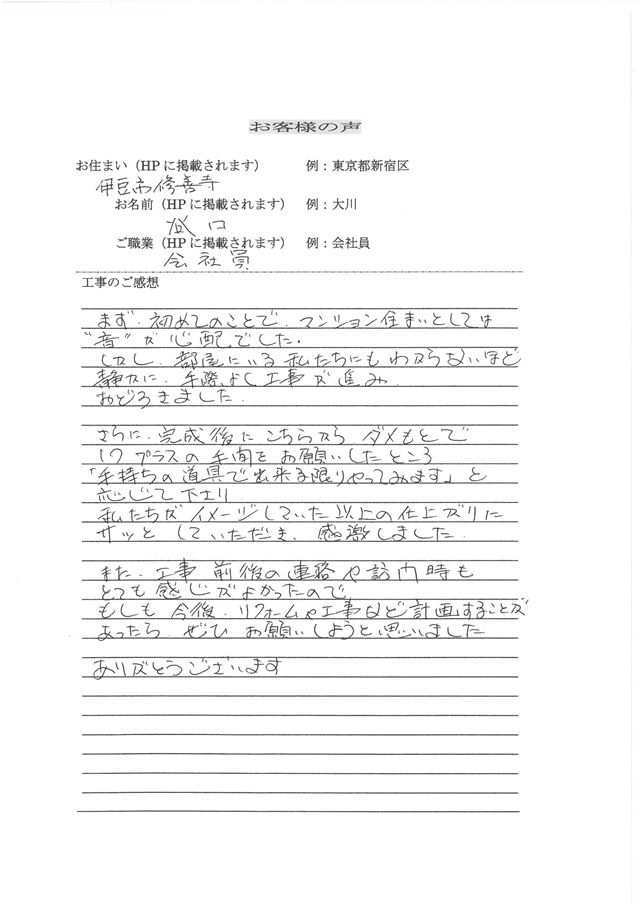 お客様の声
お住まい（HPに掲載されます） 例：東京都新宿区
伊豆市修善寺
お名前（HPに掲載されます） 例：大川
口
ご職業（HPに掲載されます） 例：会社員
会社員
工事のご感想
まず、初めてのことで、マンション住まいとしては
“音”が心配でした。
しかし、部屋にいる私たちにもわからないほど
静かに、手際よく工事が進み、
おどろきました。
さらに、完成後にこちらから ダメもとで
1つプラスの手間をお願いしたところ
「手持ちの道具で出来る限りやってみます」と
応じて下さり
私たちがイメージしていた以上の仕上がりに
サッとしていただき、感激しました。
また、工事前後の連絡や訪問時も
とても感じがよかったので
もしも今後、リフォームや工事など計画することが
あったら、ぜひ お願いしようと思いました
ありがとうございます